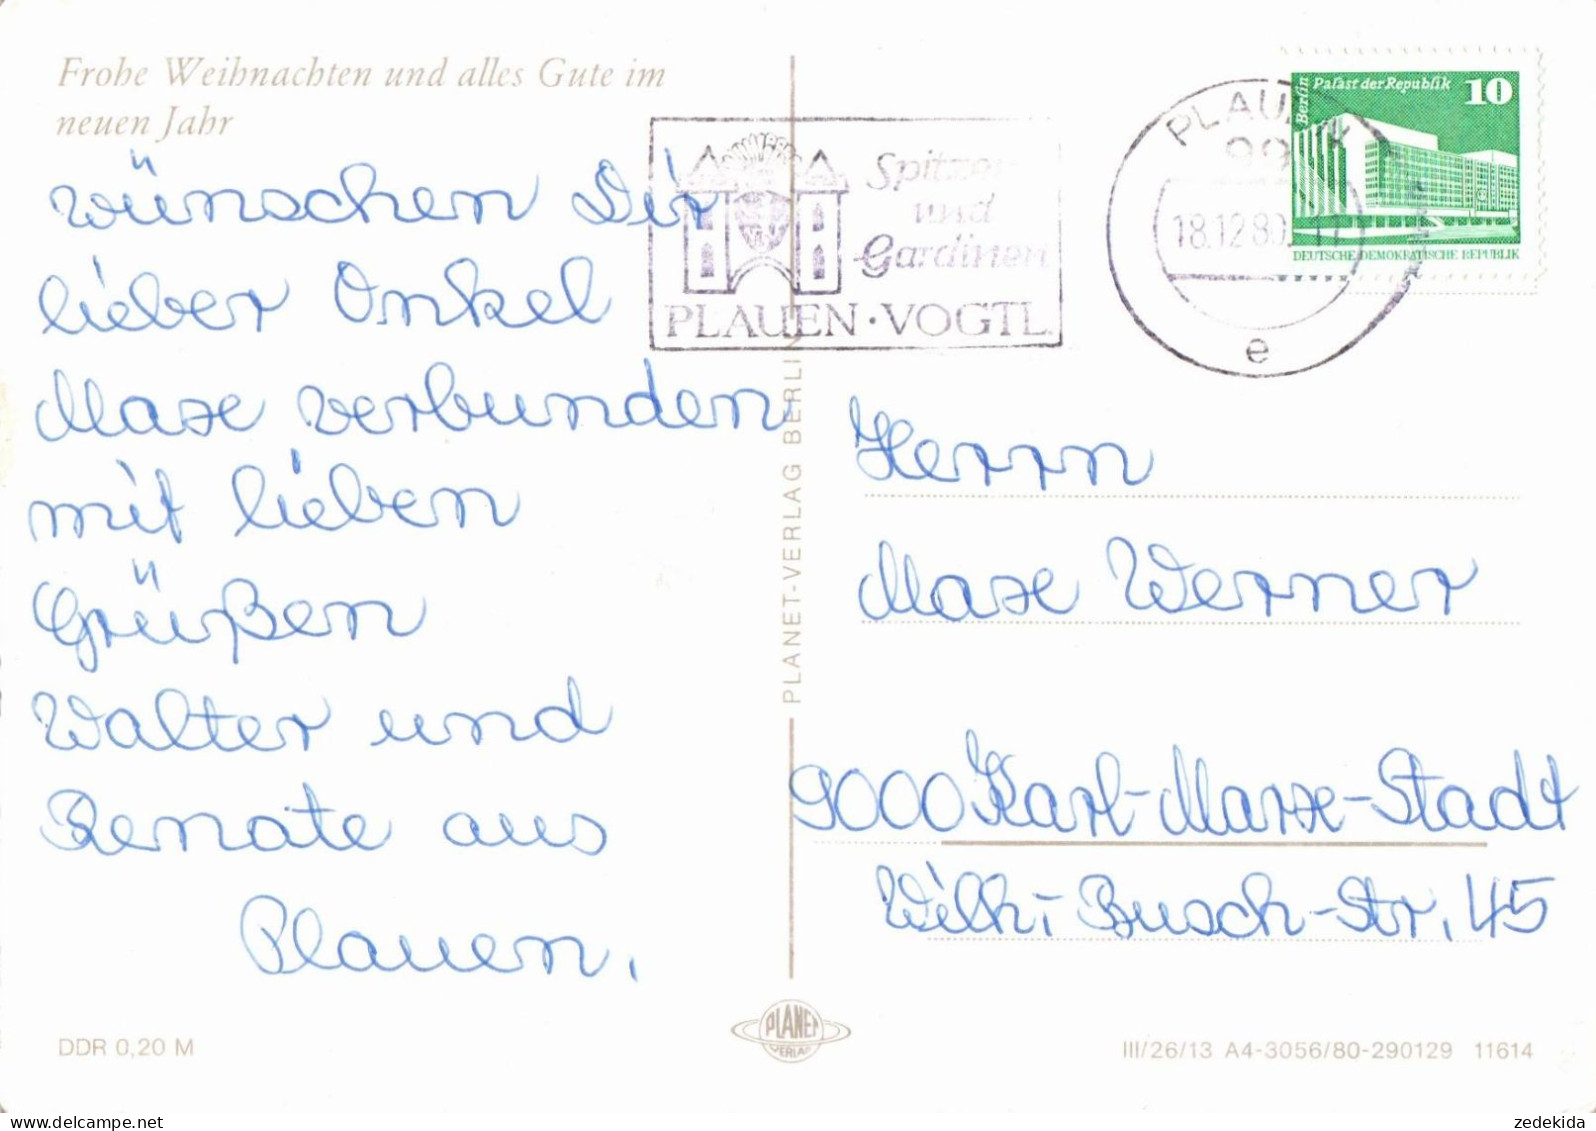 Frohe Weihnachten und alles Gute im
neuen Jahr
wünschen Dir
lieber Onkel
Max verbunden
mit lieben
Grüßen
Walter und
Renate aus
Plauen.
DDR 0,20 M
Spitzen
und
Gardinen
PLAUEN · VOGTL.
PLAUEN
99
18.12.80
e
Berlin
Palast der Republik
10
DEUTSCHE DEMOKRATISCHE REPUBLIK
PLANET-VERLAG BERLIN
Herrn
Max Werner
9000 Karl-Marx-Stadt
Wilh. Busch-Str. 45
PLANET
VERLAG
III/26/13 A4-3056/80-290129 11614
zedekida